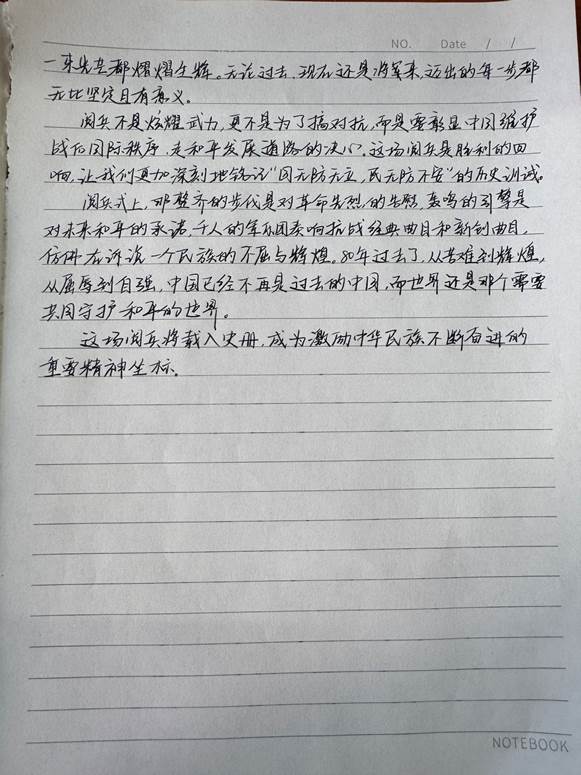 NO. Date / /
一束光芒都熠熠生辉。无论过去、现在还是将来,迈出的每一步都
无比坚定且有意义。
阅兵不是炫耀武力,更不是为了搞对抗,而是要彰显中国维护
战后国际秩序、走和平发展道路的决心。这场阅兵是胜利的回
响,让我们更加深刻地铭记“国无防无立,民无防不安”的历史训诫。
阅兵式上,那整齐的步伐是对革命先烈的告慰,轰鸣的引擎是
对未来和平的承诺,千人的军乐团奏响抗战经典曲目和新创曲目,
仿佛在诉说一个民族的不屈与辉煌。80年过去了,从苦难到辉煌,
从屈辱到自强,中国已经不再是过去的中国,而世界还是那个需要
共同守护和平的世界。
这场阅兵将载入史册,成为激励中华民族不断奋进的
重要精神坐标。
NOTEBOOK